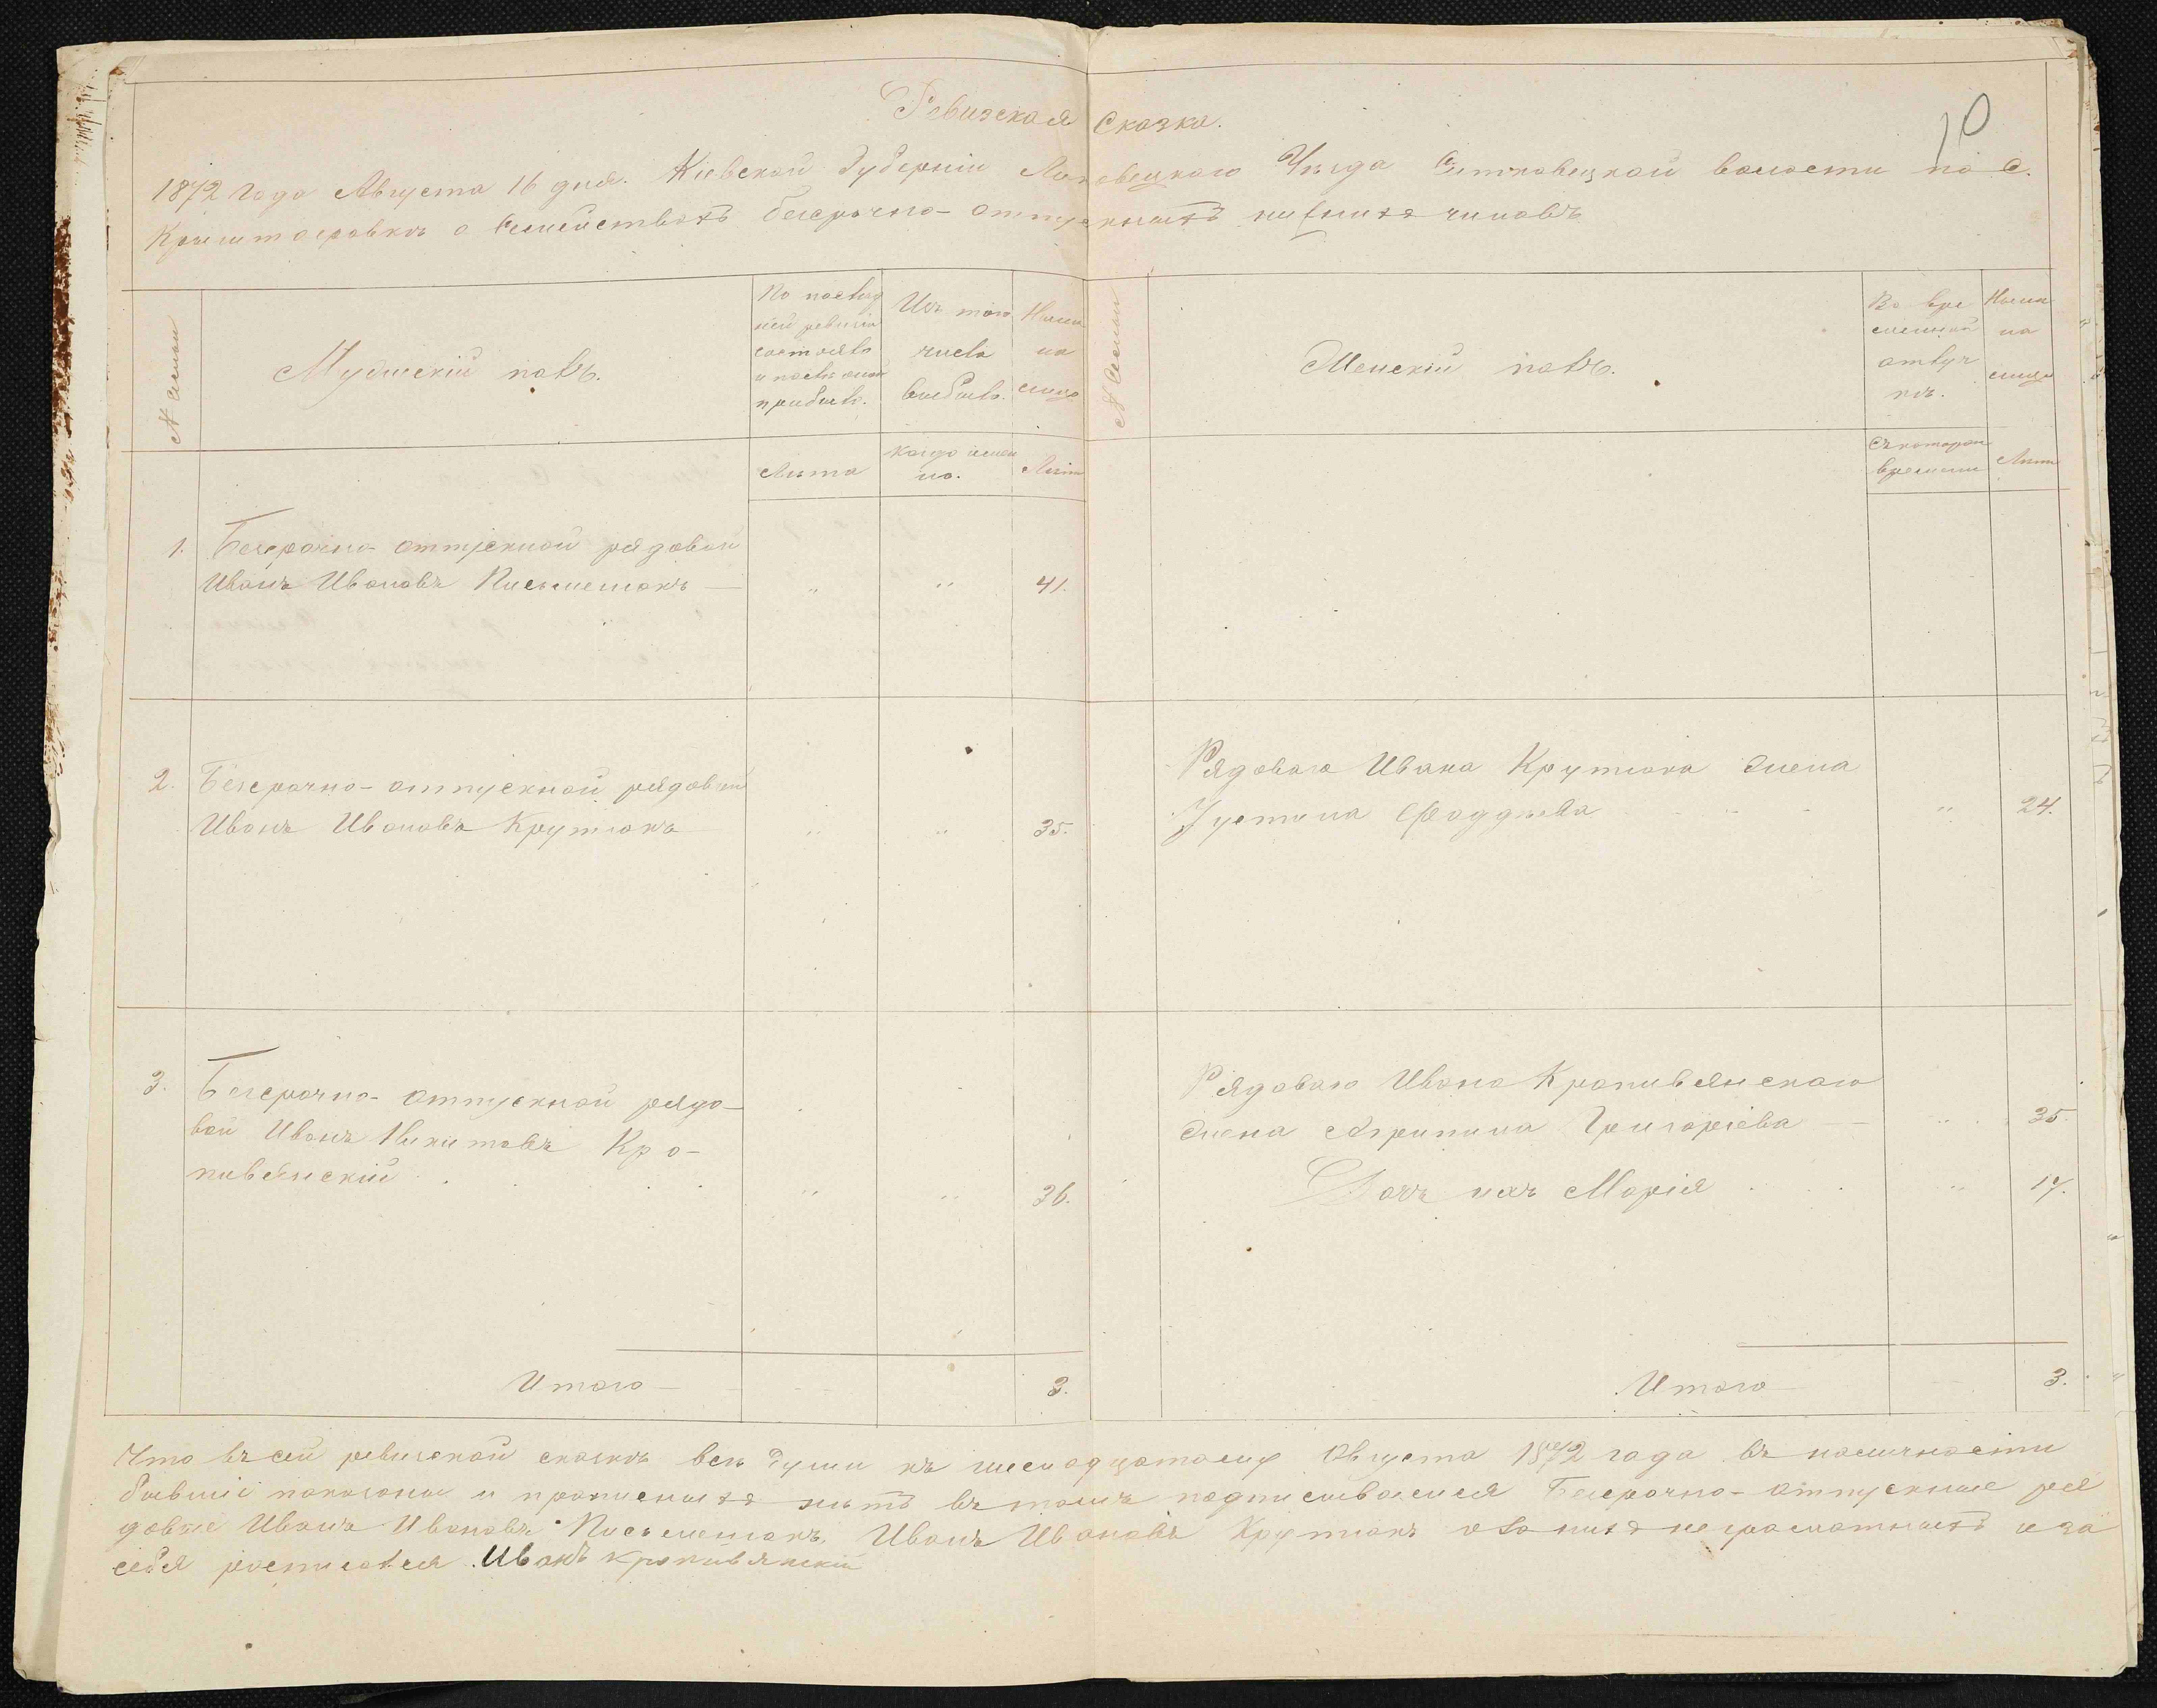 Ревизская Сказка.
10
1872 года Августа 16 дня. Кіевской Губерніи Липовецкаго Уѣзда Ситковецкой волости по с.
Криштоповкѣ о Семействахъ безсрочно-отпускныхъ нижнихъ чиновъ
№ Семьи
Мужескій полъ.
По послѣд
ней ревизіи
состояло
и послѣ оной
прибыло.
Изъ того
числа
выбыло.
Нынѣ
на
лицо
№ Семьи
Женскій полъ.
Во вре
менной
отлуч
кѣ.
Нынѣ
на
лицо
Лѣта
Когда имен
но.
Лѣта
Съ котораго
времени
Лѣта
1. Безсрочно-отпускной рядовой
Иванъ Ивановъ Письменюкъ — " " 41.
2. Безсрочно-отпускной рядовой
Иванъ Ивановъ Крутюкъ " " 35.
Рядоваго Ивана Крутюка жена
Устина Фаддѣева " 24.
3. Безсрочно-отпускной рядо-
вой Иванъ Никитовъ Кро-
пивянскій " " 36.
Рядоваго Ивана Кропивянскаго
жена Агрипина Григоріева — " 35.
Дочь ихъ Марія " 17.
Итого — 3.
Итого 3.
Что въ сей ревизской сказкѣ всѣ души къ шеснадцатому Августа 1872 года въ наличности
бывшіе показаны и прописныхъ нѣтъ въ томъ подписываемся Безсрочно-отпускные ря
довые Иванъ Ивановъ Письменюкъ, Иванъ Ивановъ Крутюкъ а за нихъ неграмотныхъ и за
себя росписался Иванъ Кропивянскій